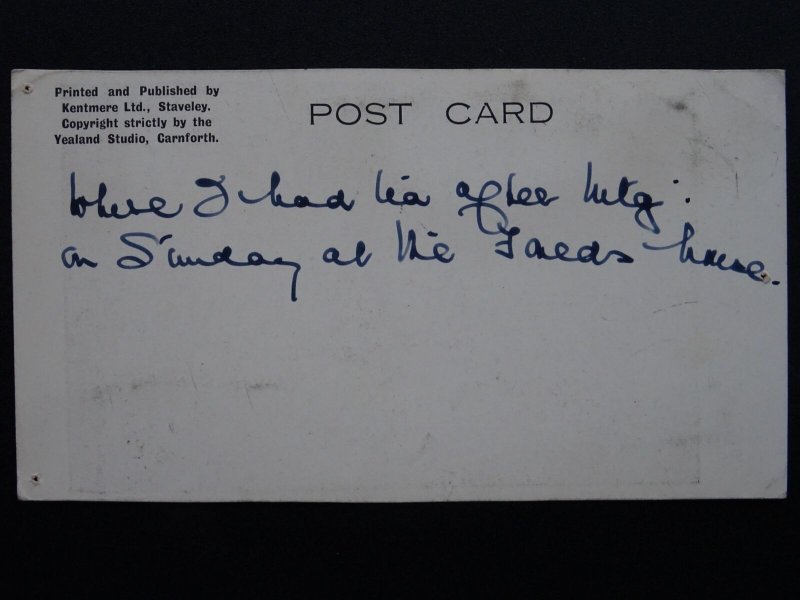 Printed and Published by
Kentmere Ltd., Staveley.
Copyright strictly by the
Yealand Studio, Carnforth.
POST CARD
Where I had tea after Mtg:
on Sunday at the house.